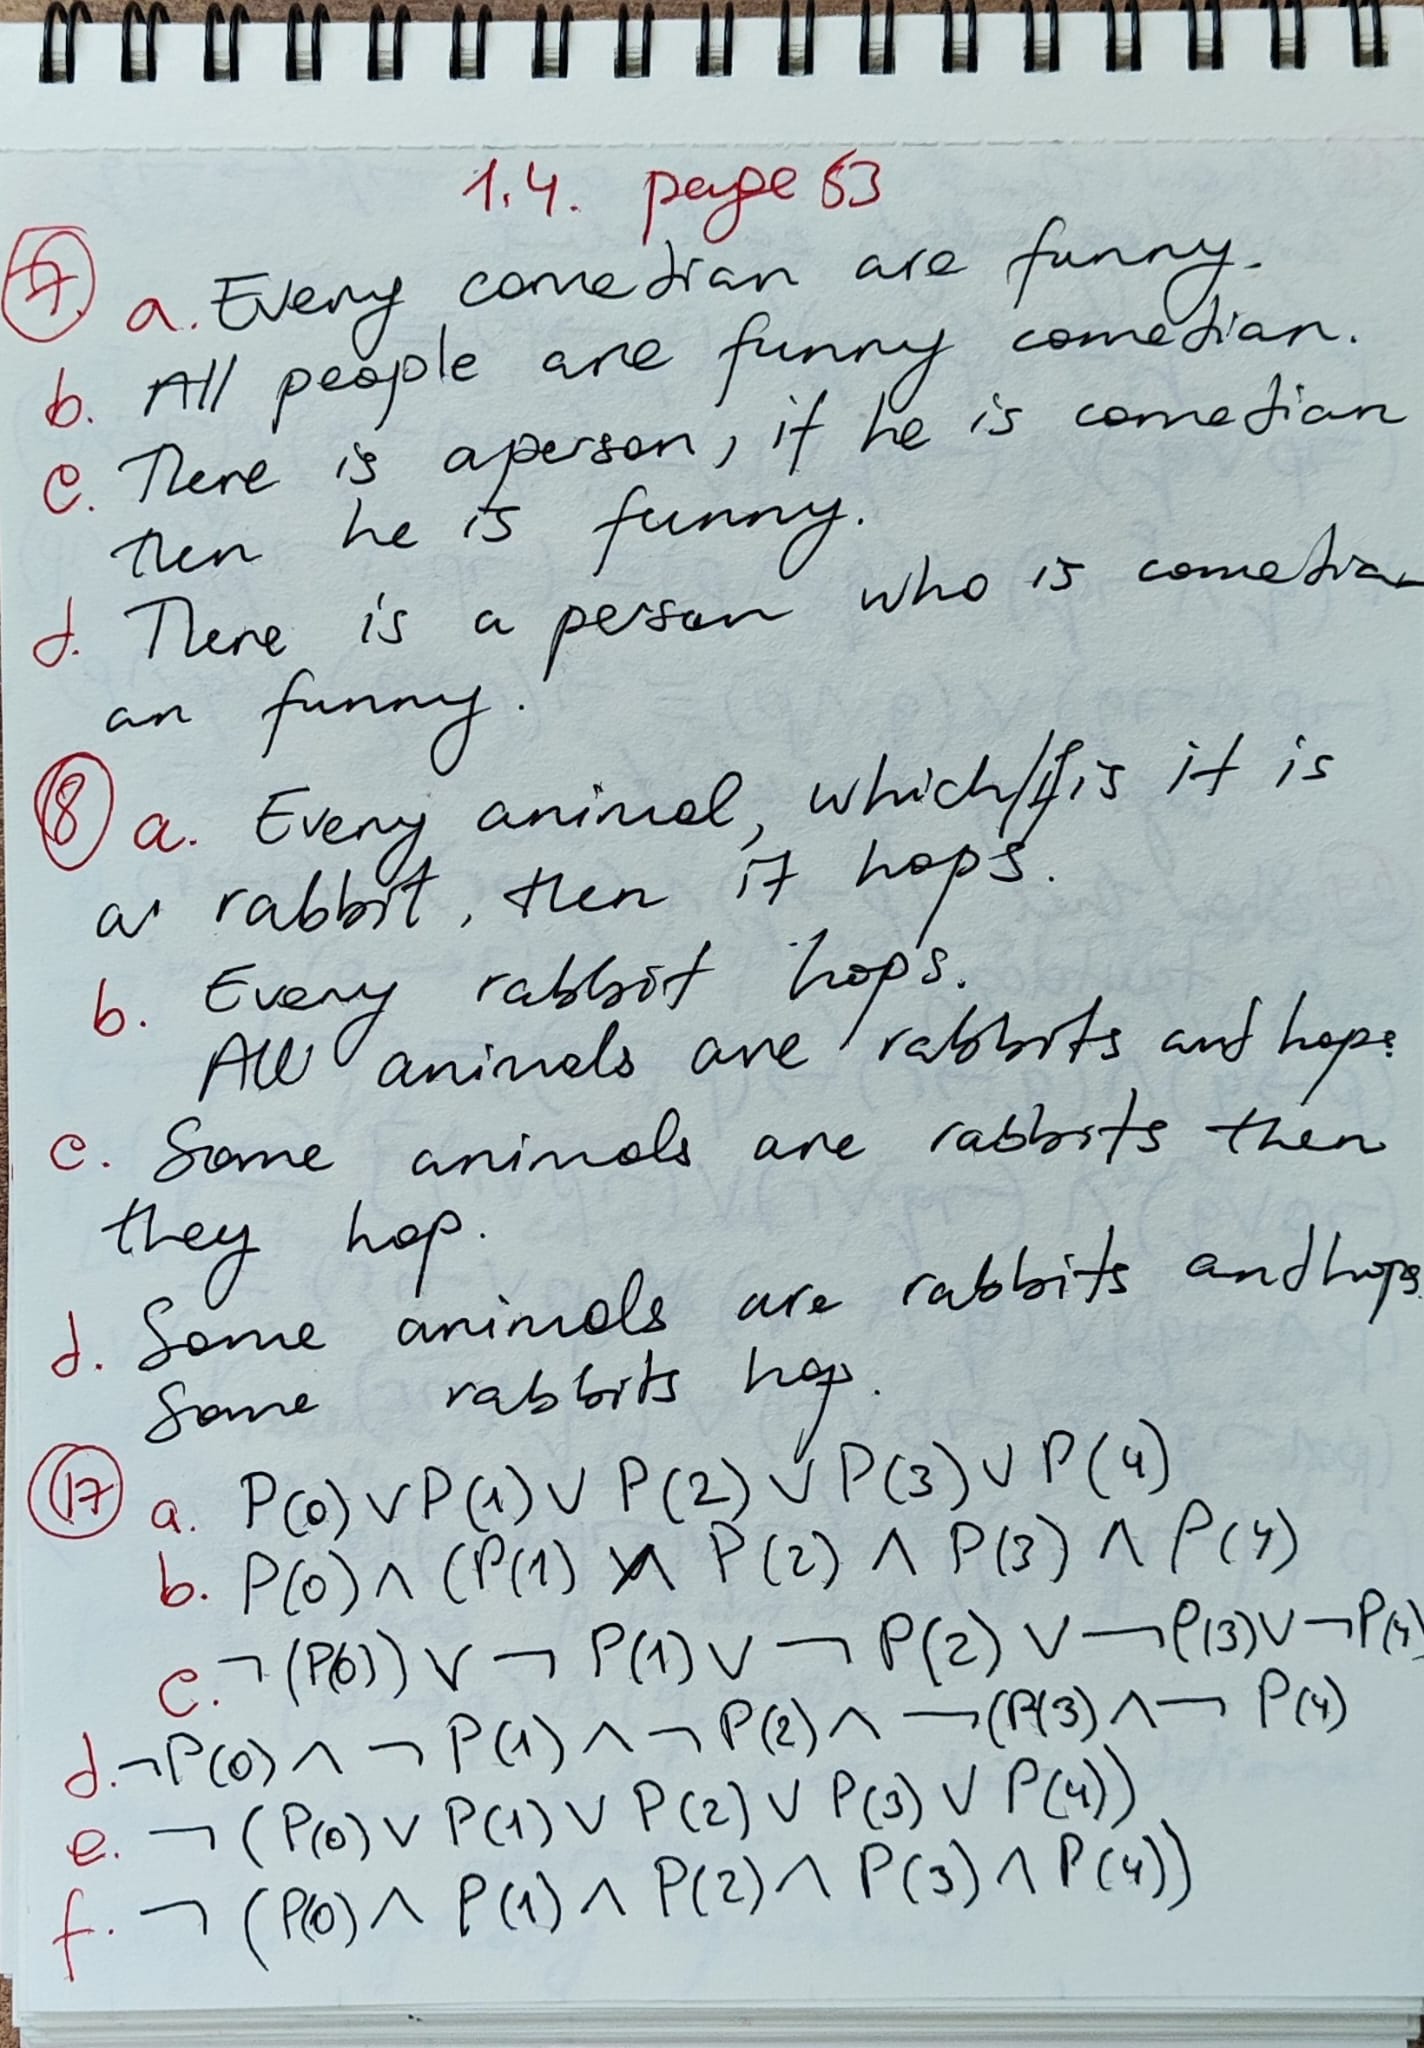 1.4. page 53
7. a. Every comedian are funny.
b. All people are funny comedian.
c. There is a person, if he is comedian
then he is funny.
d. There is a person who is comedian
an funny.
8 a. Every animal, which/if is it is
a rabbit, then it hops.
b. Every rabbit hops.
All animals are rabbits and hops
c. Some animals are rabbits then
they hop.
d. Some animals are rabbits and hops.
Some rabbits hop.
17 a. P(0) ∨ P(1) ∨ P(2) ∨ P(3) ∨ P(4)
b. P(0) ∧ (P(1) ∧ P(2) ∧ P(3) ∧ P(4)
c. ¬(P(0)) ∨ ¬ P(1) ∨ ¬ P(2) ∨ ¬P(3) ∨ ¬P(4)
d. ¬P(0) ∧ ¬ P(1) ∧ ¬ P(2) ∧ ¬(P(3) ∧ ¬ P(4)
e. ¬ (P(0) ∨ P(1) ∨ P(2) ∨ P(3) ∨ P(4))
f. ¬ (P(0) ∧ P(1) ∧ P(2) ∧ P(3) ∧ P(4))